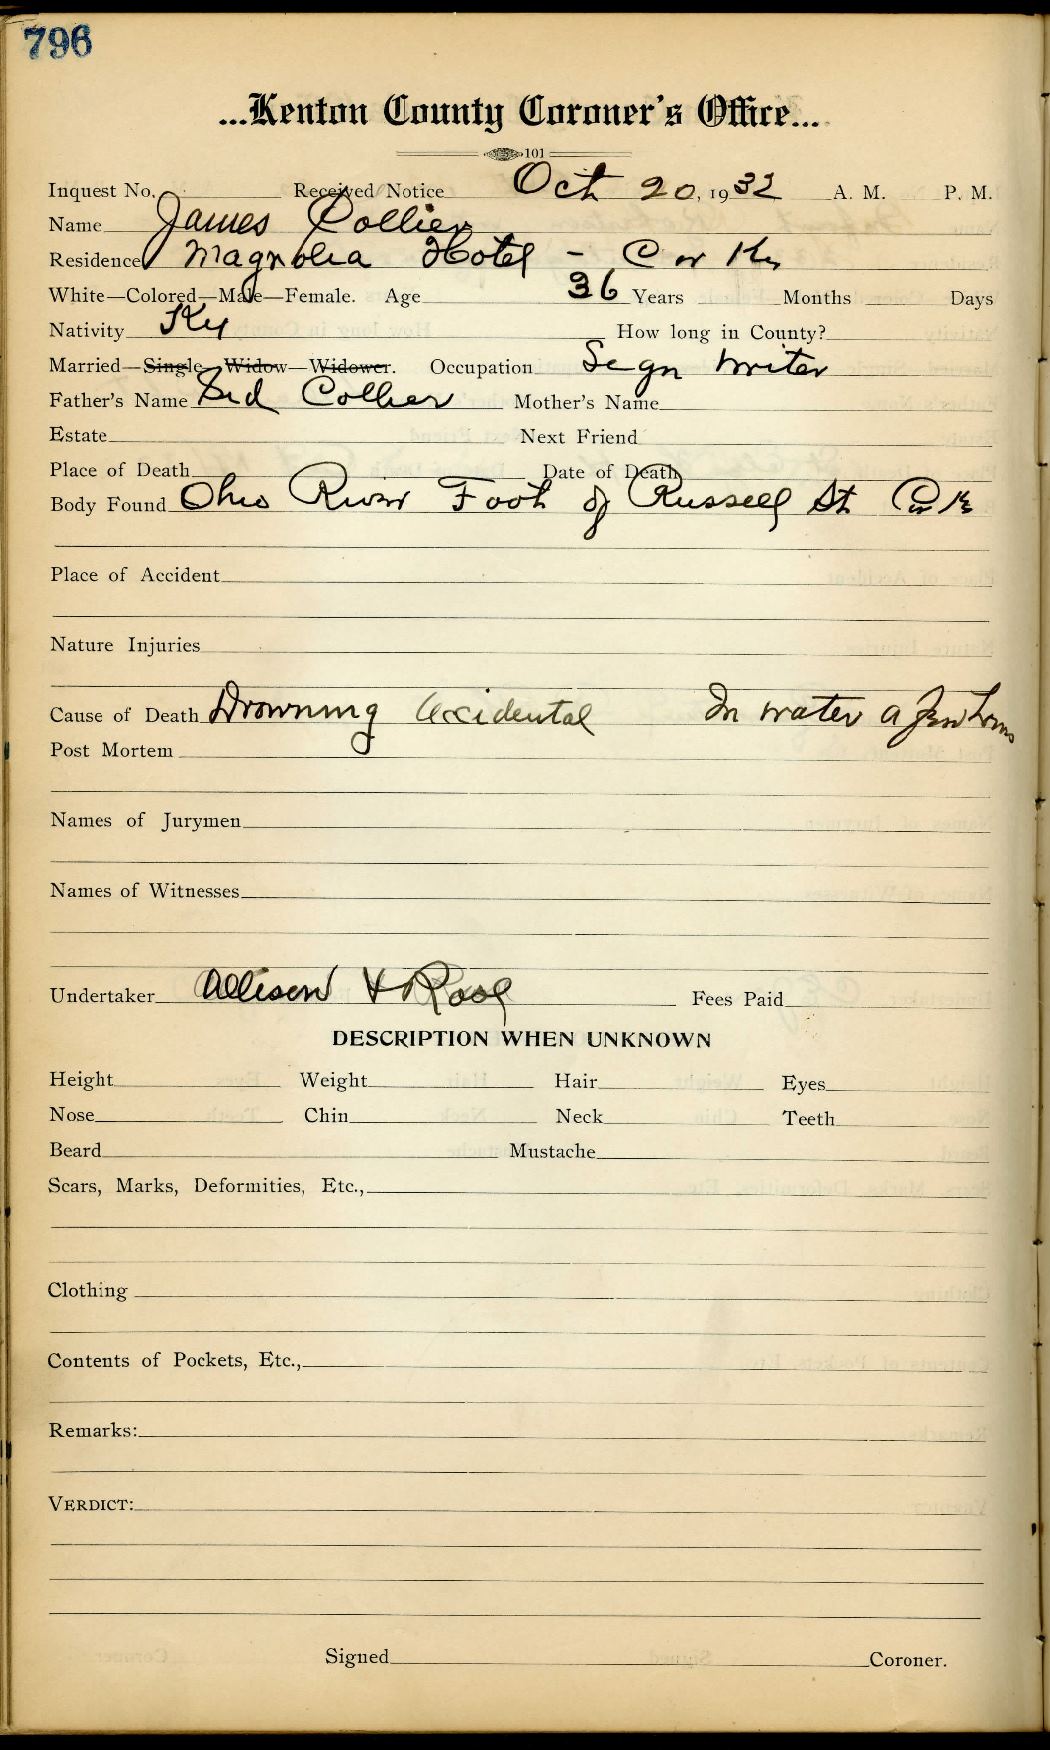 796
...Kenton County Coroner's Office...
101
Inquest No. Received Notice Oct 20, 1932 A. M. P. M.
Name James Collier
Residence Magnolia Hotel - Cov Ky
White—Colored—Male—Female. Age 36 Years Months Days
Nativity Ky How long in County?
Married—Single—Widow—Widower. Occupation Sign writer
Father's Name Sid Collier Mother's Name
Estate Next Friend
Place of Death Date of Death
Body Found Ohio River Foot of Russell St
Place of Accident
Nature Injuries
Cause of Death Drowning Accidental In water a few hours
Post Mortem
Names of Jurymen
Names of Witnesses
Undertaker Allison & Rose Fees Paid
DESCRIPTION WHEN UNKNOWN
Height Weight Hair Eyes
Nose Chin Neck Teeth
Beard Mustache
Scars, Marks, Deformities, Etc.,
Clothing
Contents of Pockets, Etc.,
Remarks:
VERDICT:
Signed Coroner.